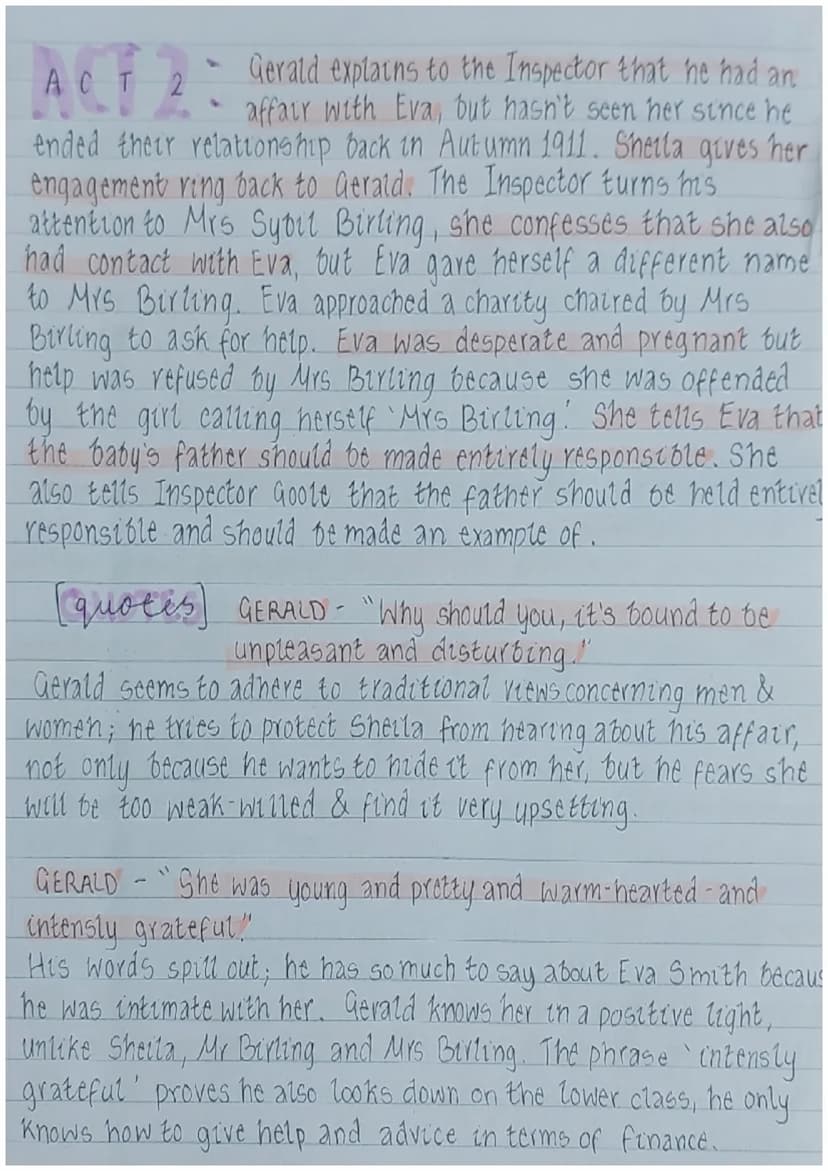 ACT 2: Gerald explains to the Inspector that he had an
affair with Eva, but hasn't seen her since he
ended their relationship back in Autumn 1911. Sheila gives her
engagement ring back to Gerald. The Inspector turns his
attention to Mrs Sybil Birling, she confesses that she also
had contact with Eva, but Eva gave herself a different name
to Mrs Birling. Eva approached a charity chaired by Mrs
Birling to ask for help. Eva was desperate and pregnant but
help was refused by Mrs Birling because she was offended
by the girl calling herself 'Mrs Birling.' She tells Eva that
the baby's father should be made entirely responsible. She
also tells Inspector Goole that the father should be held entirel
responsible and should be made an example of.
[quotes] GERALD - "Why should you, it's bound to be
unpleasant and disturbing."
Gerald seems to adhere to traditional views concerning men &
women; he tries to protect Sheila from hearing about his affair,
not only because he wants to hide it from her, but he fears she
will be too weak-willed & find it very upsetting.
GERALD - "She was young and pretty and warm-hearted - and
intensly grateful."
His words spill out; he has so much to say about Eva Smith becaus
he was intimate with her. Gerald knows her in a positive light,
unlike Sheila, Mr Birling and Mrs Birling. The phrase 'intensly
grateful' proves he also looks down on the lower class, he only
knows how to give help and advice in terms of finance.